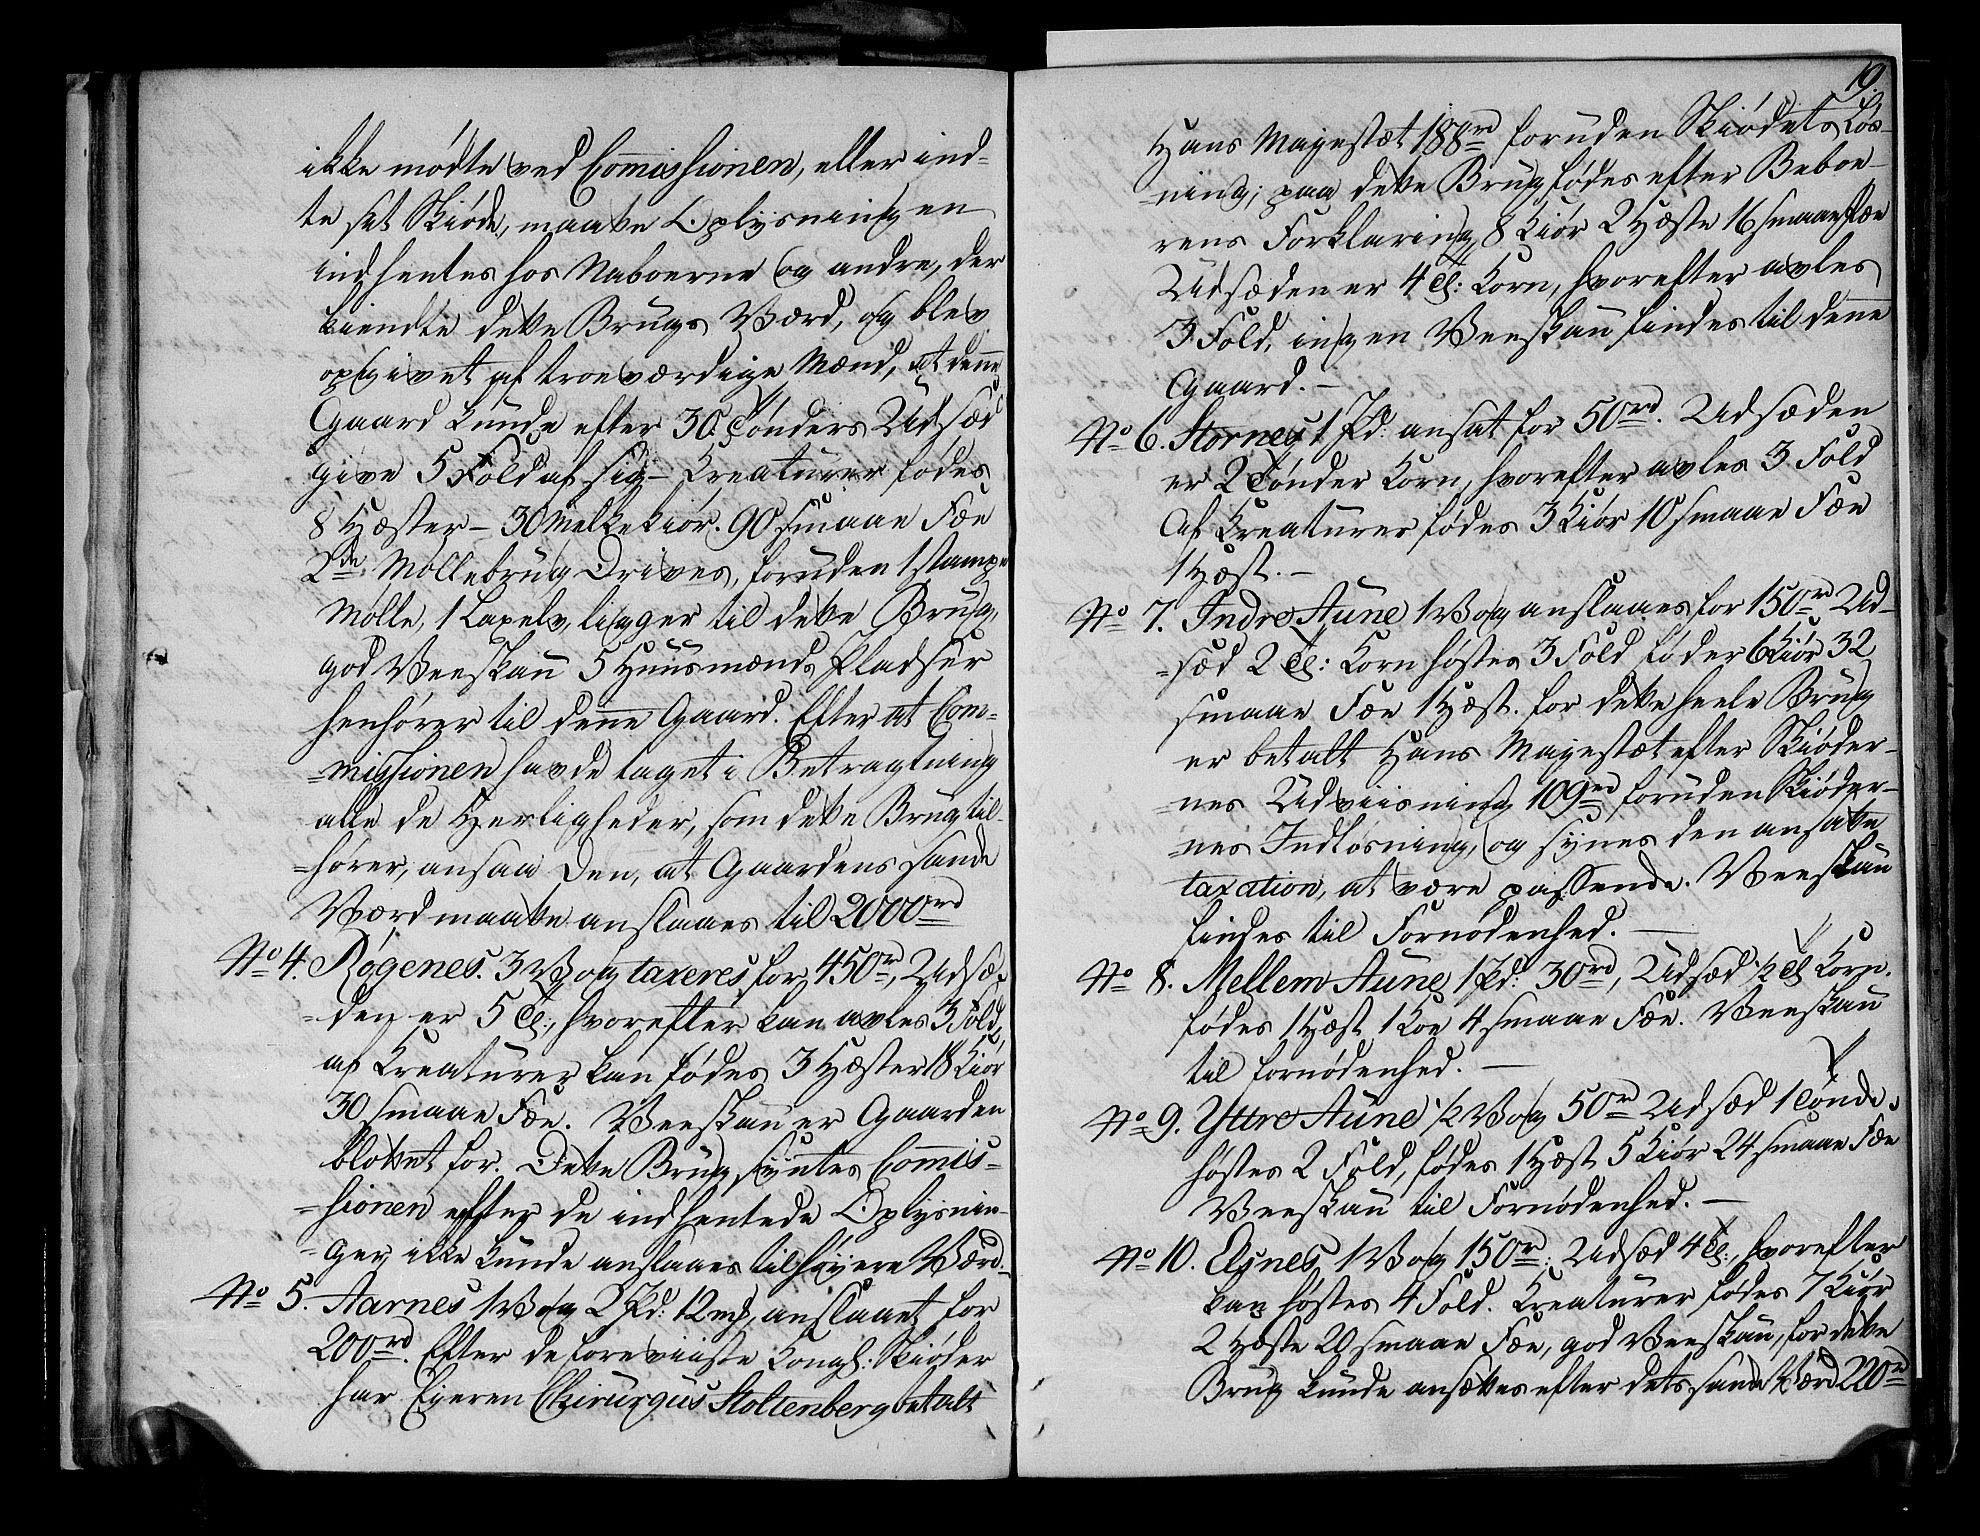 ikke mødte ved Commissionen, eller ind-
te set Skiøde, maatte Oplysningen
indhentes hos Naboerne og andre, der
kiendte dette Brugs Værd, og blev
opgivet af troeværdige Mænd, at denne
Gaard kunde efter 30 Tønders Udsæd
give 5 Fold af sig – Creaturer fødes
8 Hæster – 30 Melkekiør. 90 smaae Fæe
2de Møllebrug Drives, foruden 1 stampe
Mølle, 1 Laxelv, ligger til dette Brug,
god Veeskau 5 Huusmænds Pladser
henhører til denne Gaard. Efter at Com-
-missionen havde taget i Betragtning
alle de Herligheder, som dette Brug til-
-hører, ansaa Den, at Gaardens sande
Værd maatte anslaaes til 2000rd
No 4. Røgenes. 3 Vog taxeres for 450rd, Udsæ-
-den er 5 Td:, hvorefter kan avles 3 Fold,
af Creaturer kan fødes 3 Hæster 18 Kiør
30 smaae Fæe. Veeskau er Gaarden
blottet for. Dette Brug syntes Commis-
-sionen efter de indhentede Oplysnin-
-ger ikke kunde anslaaes til høyere Værd.
No 5. Aarnes 1 Vog 2 Pd: 12 mk, anslaaet for
200rd. Efter de foreviiste Kongl: Skiøder
har Eyeren Chirurgus Stoltenberg betalt
19.
Hans Majestæt 188rd foruden Skiødets Løs-
ning; paa dette Brug fødes efter Beboe-
rens Forklaring 8 Kiør 2 Hæste 16 smaae Fæe
Udsæden er 4 Td: Korn, hvorefter avles
3 Fold, ingen Veeskau findes til denne
Gaard. –
No 6. Stornes 1 Pd: ansat for 50rd. Udsæden
er 2 Tønder Korn, hvorefter avles 3 Fold
Af Creaturer fødes 3 Kiør 10 smaae Fæe
1 Hæst. –
No 7. Indre Aune 1 Vog anslaaes for 150rd Ud-
-sæd 2 Td: Korn høstes 3 Fold føder 6 Kiør 32
smaae Fæe 1 Hæst. for dette heele Brug
er betalt Hans Majestæt efter Skiøder-
nes Udviisning 109rd foruden Skiøder-
-nes Indløsning, og synes den ansatte
taxation, at være passende. Veeskau
findes til Fornødenhed. –
No 8. Mellem Aune 1 Pd: 30rd, Udsæd ½ Td Korn.
fødes 1 Hæst 1 Koe 4 smaae Fæe. Veeskau
til fornødenhed. –
No 9. Yttre Aune ½ Vog 50rd Udsæd 1 Tønde,
høstes 2 Fold, fødes 1 Hæst 5 Kiør 24 smaae Fæe
Veeskau til Fornødenhed. –
No 10. Elgnes 1 Vog 150rd: Udsæd 4 Td:, hvorefter
kan høstes 4 Fold. Creaturer fødes 7 Kiør
2 Hæste 20 smaae Fæe, god Veeskau, for dette
Brug kunde ansættes efter dets sande Værd 220rd